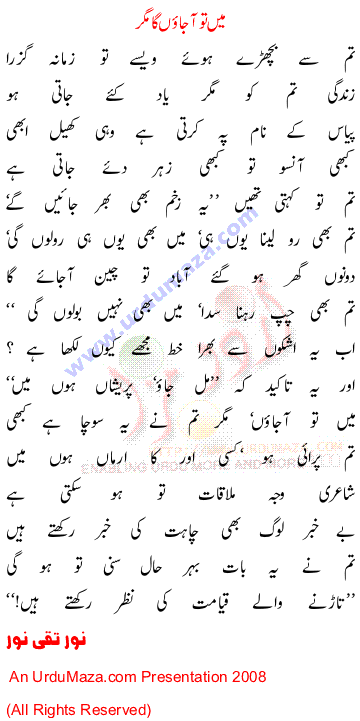 میں تو آجاؤں گا مگر
تم سے بچھڑے ہوئے ویسے تو زمانہ گزرا
زندگی تم کو مگر یاد کئے جاتی ہو
پیاس کے نام پہ کرتی ہے وہی کھیل ابھی
کبھی آنسو تو کبھی زہر دئے جاتی ہے
تم تو کہتی تھیں ’’یہ زخم بھی بھر جائیں گے‘
تم بھی رو لینا یوں ہی‘ میں بھی یوں ہی رولوں گی‘
دونوں گھر ہو گئے آباد تو چین آجائے گا
تم بھی چپ رہنا سدا‘ میں بھی نہیں بولوں گی ‘‘
اب یہ اشکوں سے بھرا خط مجھے کیوں لکھا ہے ؟
اور یہ تاکید کہ ’’مل جاؤ‘ پریشاں ہوں میں‘‘
میں تو آجاؤں‘ مگر تم نے یہ سوچا ہے کبھی
تم پرائی ہو ‘کسی اور کا ارماں ہوں میں
شاعری وجہ ملاقات تو ہو سکتی ہے
بے خبر لوگ بھی چاہت کی خبر رکھتے ہیں
تم نے یہ بات بہر حال سنی تو ہو گی
’’تاڑنے والے قیامت کی نظر رکھتے ہیں!‘‘
نور تقی نور
An UrduMaza.com Presentation 2008
(All Rights Reserved)
www.urdumaza.com
ENABLING URDU MORE AND MORE